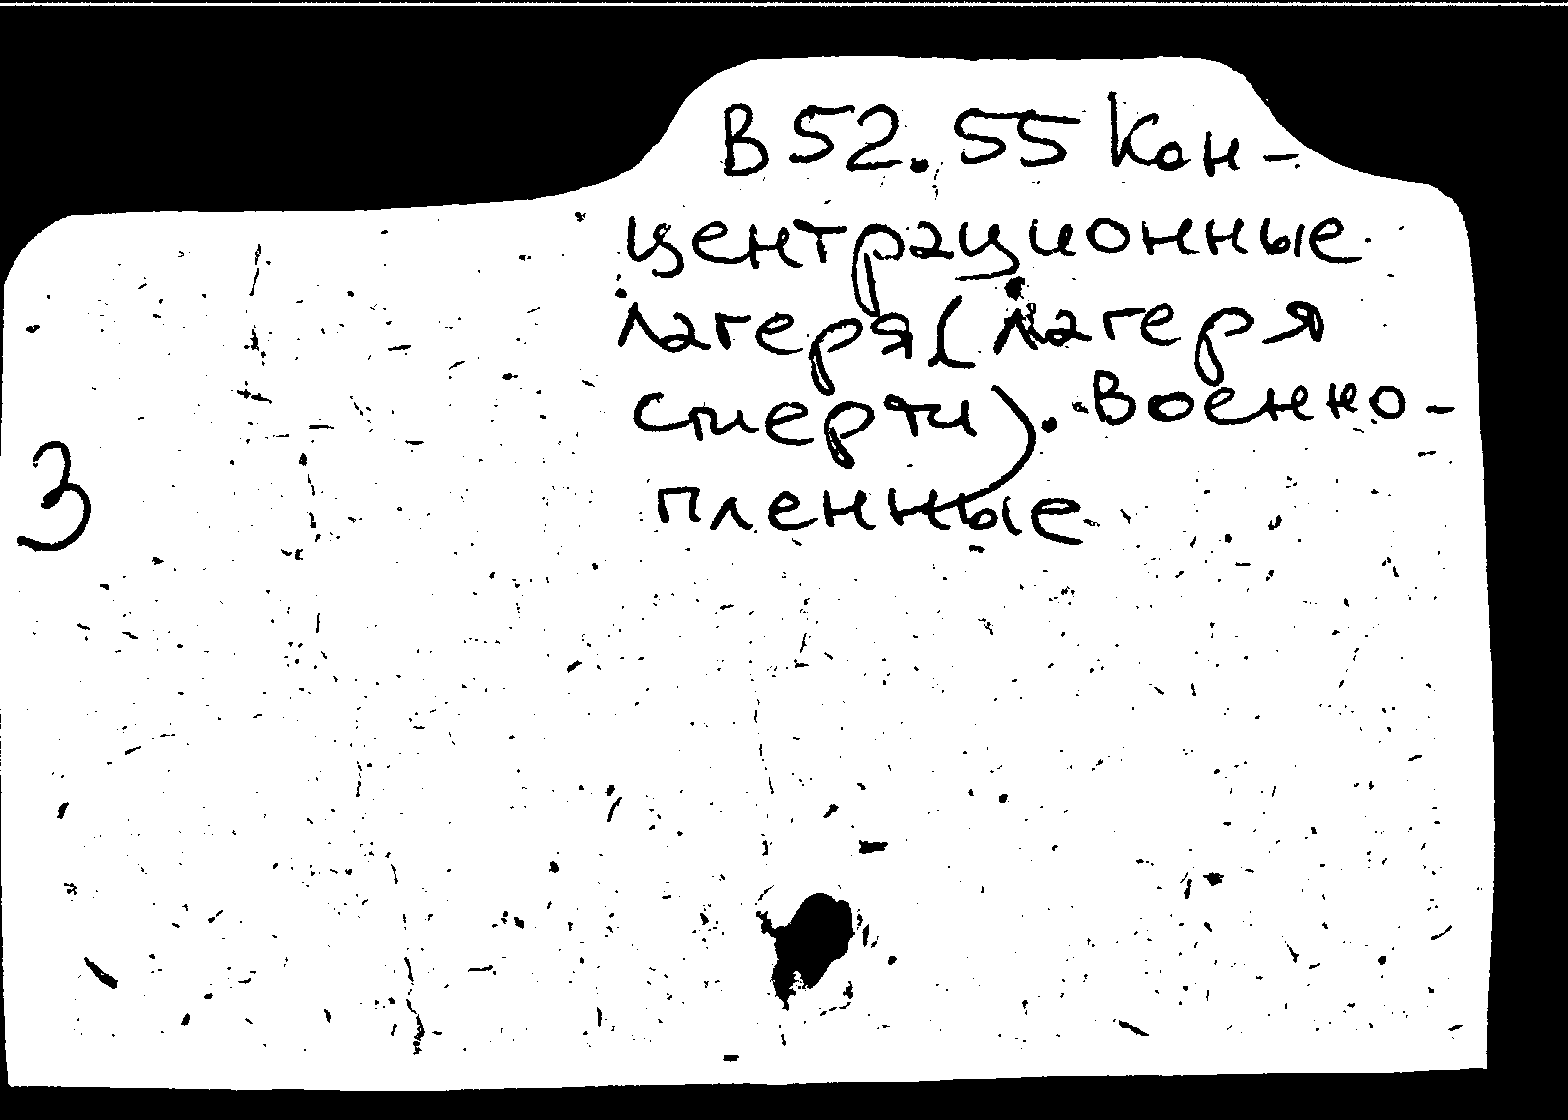 В 52.55 Кон-
центрационные
лагеря (лагеря
смерти). Военно-
пленные
3